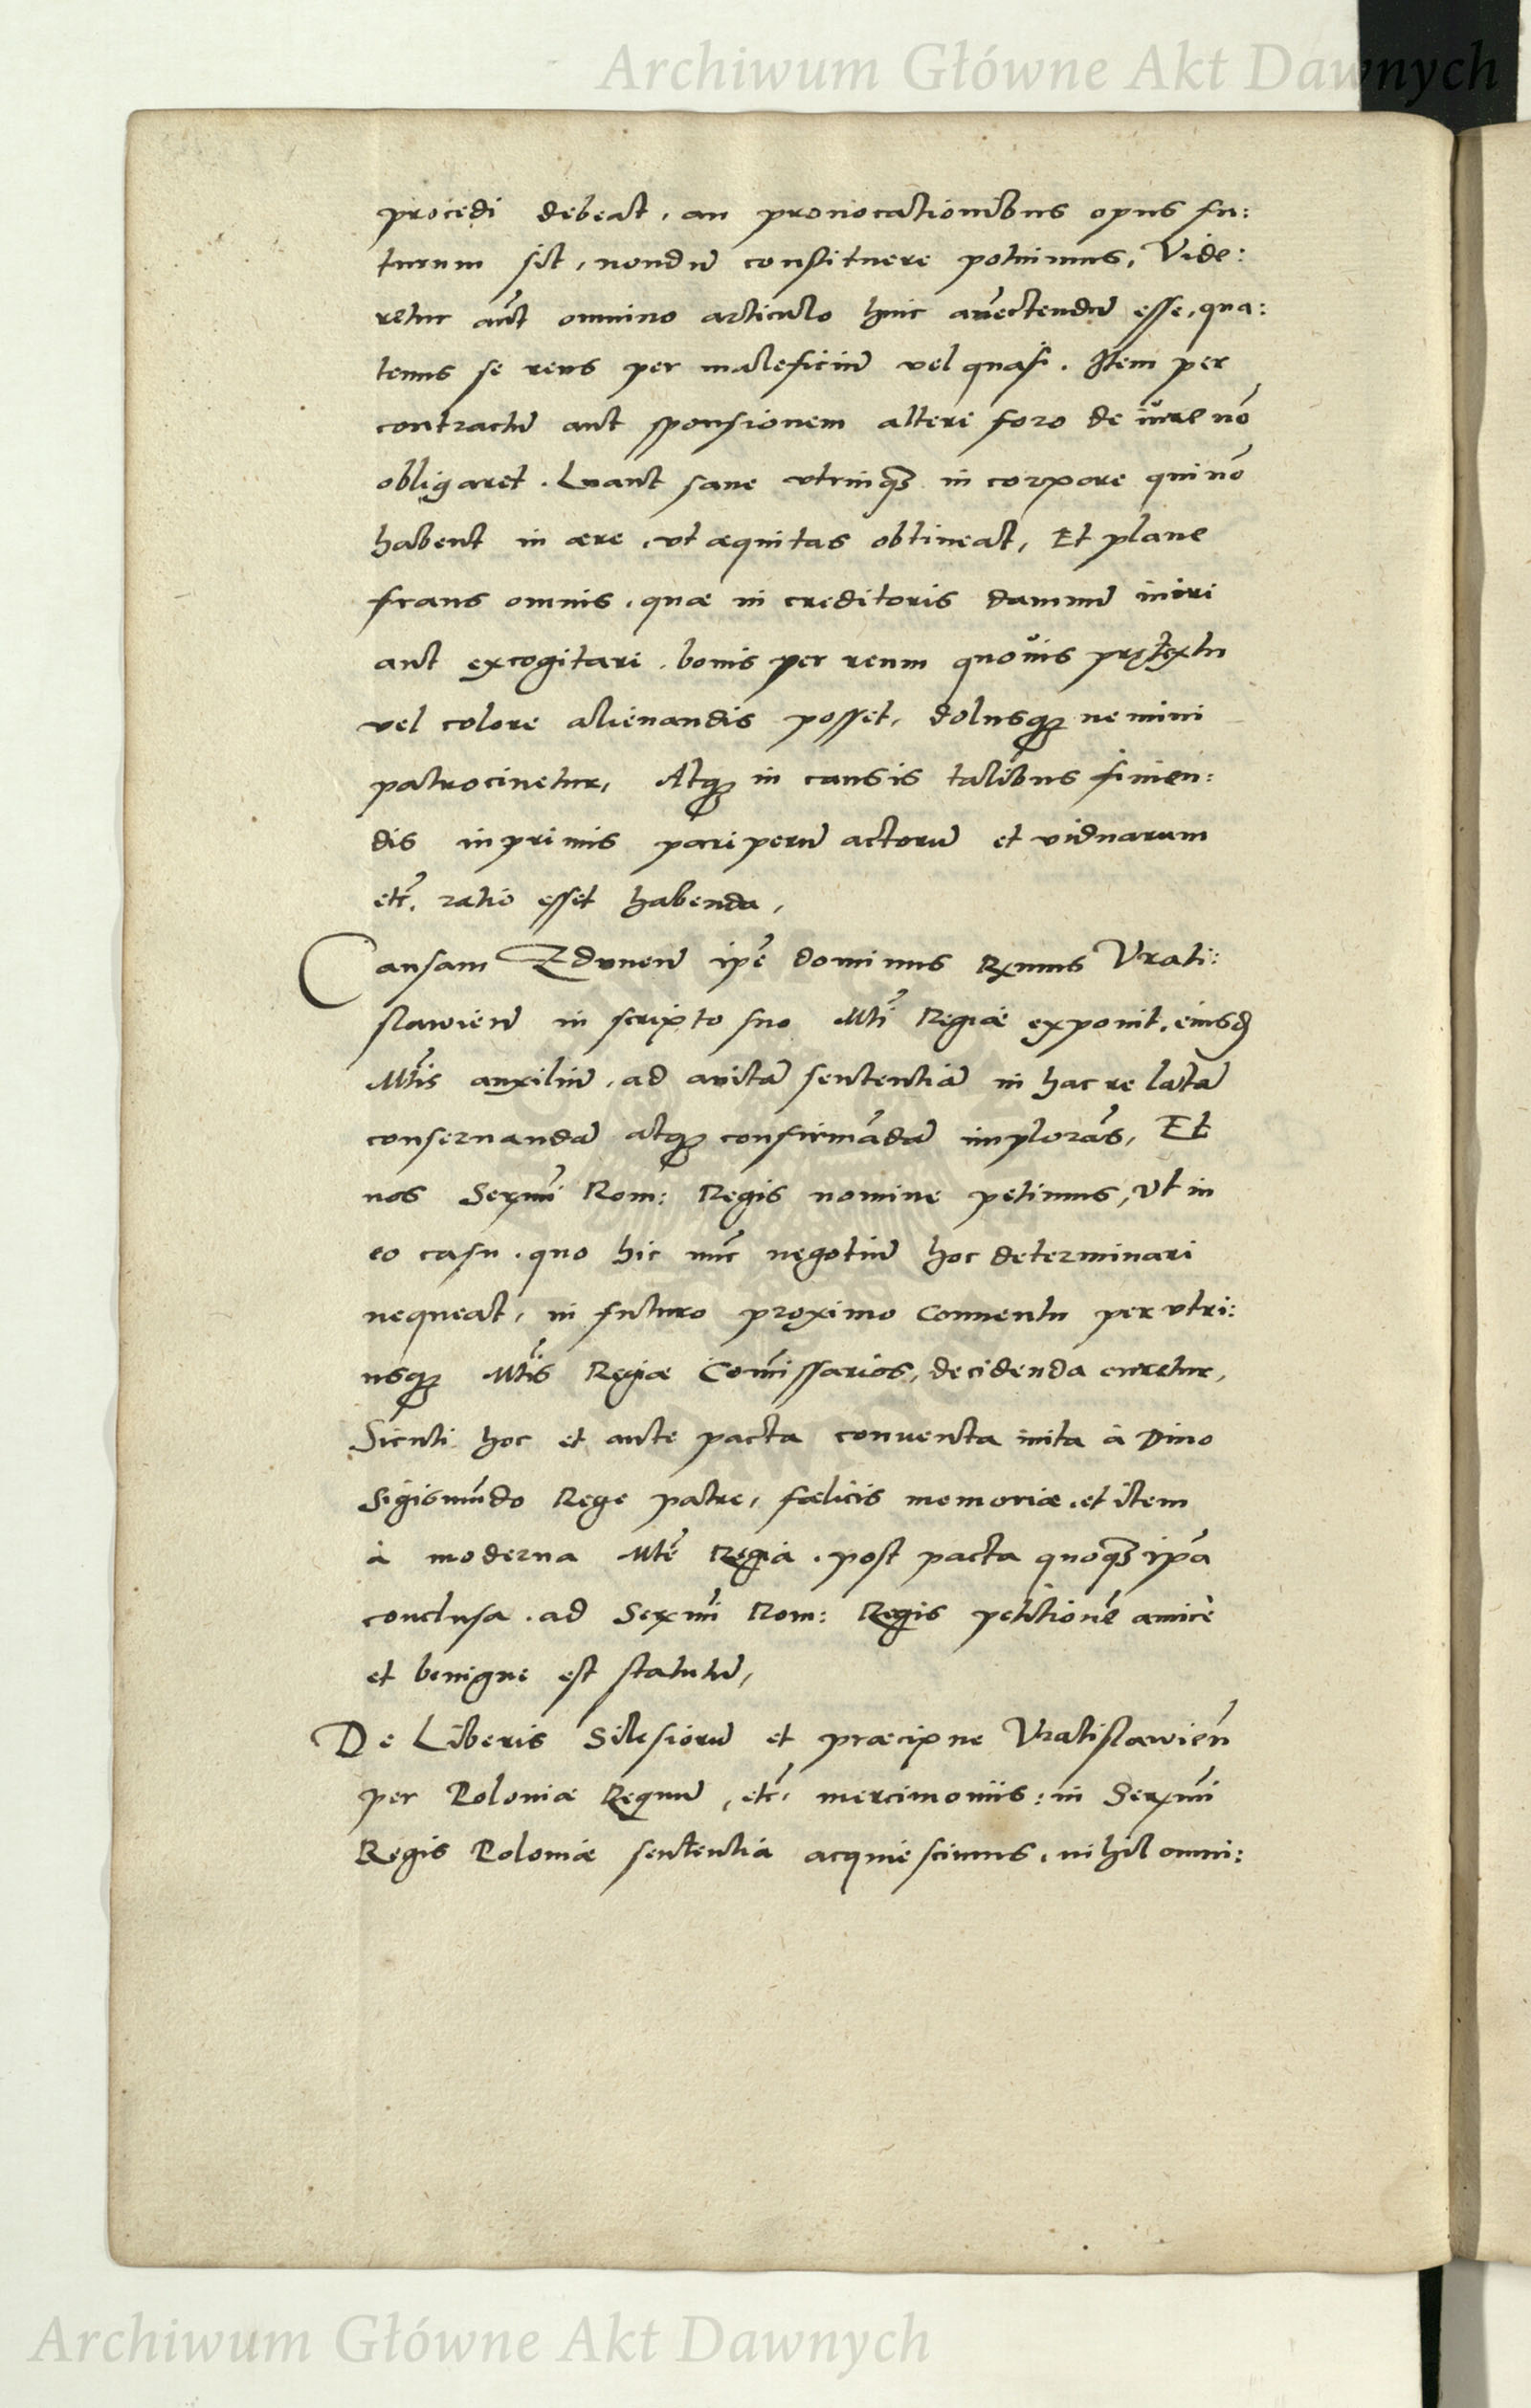 Archiwum Główne Akt Dawnych
procedi debeat, an prouocationibus opus fu:
turum sit, nondũ constituere potuimus, Vide:
retur aũt omnino articulo huic annectendũ esse, qua:
tenus se reus per maleficiũ vel quasi. Item per
contractũ aut sponsionem alteri foro de iure nõ
obligaret. Luant sane vtrinqꝫ in corpore qui nõ
habent in aere, vt aequitas obtineat, Et plane
fraus omnis, quae in creditoris damnũ iniri
aut excogitari, bonis per reum quouis prętextu
vel colore alienandis posset, dolusqꝫ nemini
patrocinetur, Atqꝫ in causis talibus finien:
dis inprimis pauperũ actorũ et viduarum
etc̃. ratio esset habenda,
Causam Zduneñ ip̃e dominus Rx̃mus Vrati:
slawieñ in scripto suo M̃ti Regiae exponit, eiusd̃
M̃tis auxiliũ, ad auitã sententiã in hac re latã
conseruandã atqꝫ confirmãdã implorãs, Et
nos Serx̃mi Rom: Regis nomine petimus, vt in
eo casu, quo hic nũc negotiũ hoc determinari
nequeat, in futuro proximo Conuentu per vtri:
usqꝫ M̃tis Regiae Com̃issarios, decidenda curetur,
Sicuti hoc et ante pacta conuenta inita à Diuo
Sigismũdo Rege patre, foelicis memoriae, et item
à moderna M̃te Regia, post pacta quoqꝫ ip̃a
conclusa, ad Serx̃mi Rom: Regis petitionẽ amicè
et benigne est statutũ,
De Liberis Silesiorũ et praecipue Vratislawieñ
per Poloniae Regnũ, etc̃, mercimoniis: in Serx̃mi
Regis Poloniae sententia acquiescimus, nihil omni:
Archiwum Główne Akt Dawnych